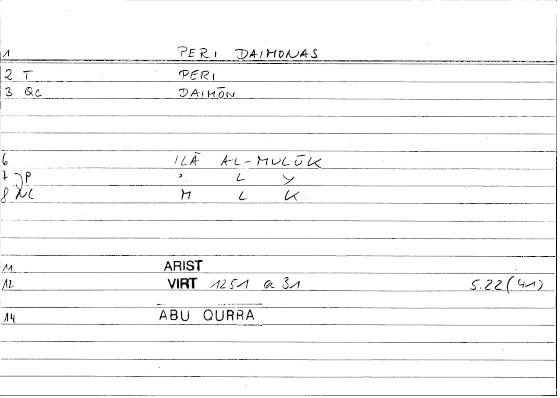 1 PERI DAIMONAS
2 T PERI
3 QC DAIMŌN
6 ILĀ AL-MULŪK
7 JP ' L Y
8 NC M L K
11 ARIST
12 VIRT 1251 a 31 5.22(41)
14 ABU QURRA